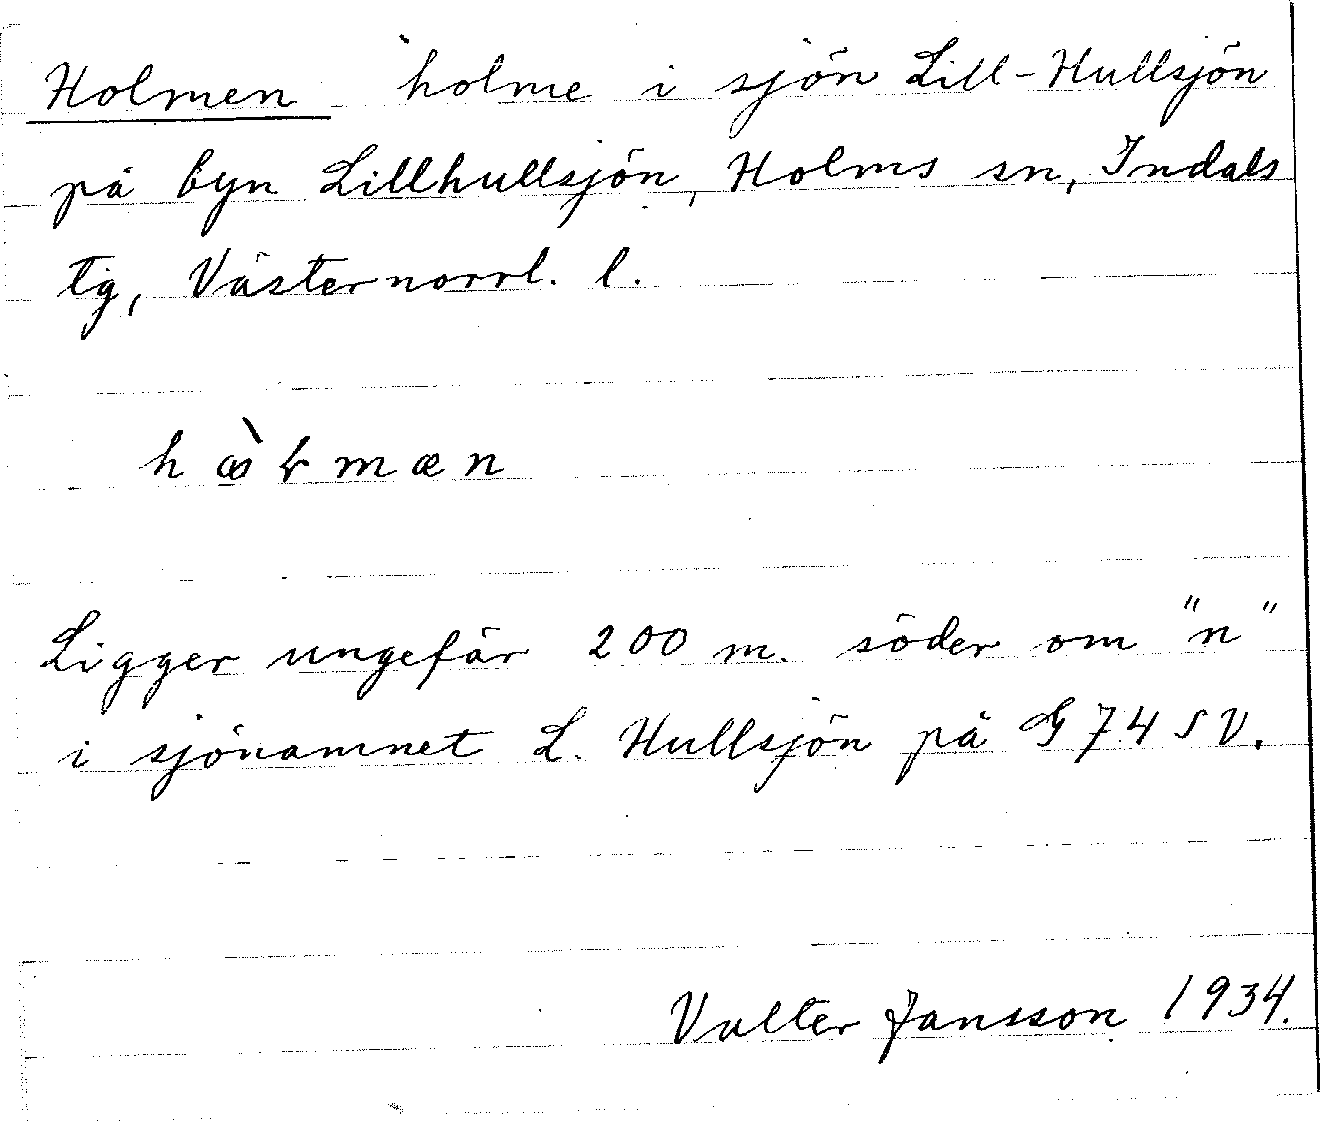 Holmen holme i sjön Lill-Hullsjön
på byn Lillhullsjön, Holms sn, Indals
tg, Västernorrl. l.
Ligger ungefär 200 m. söder om "n"
i sjönamnet L. Hullsjön på G74SV.
Valter Jansson 1934.